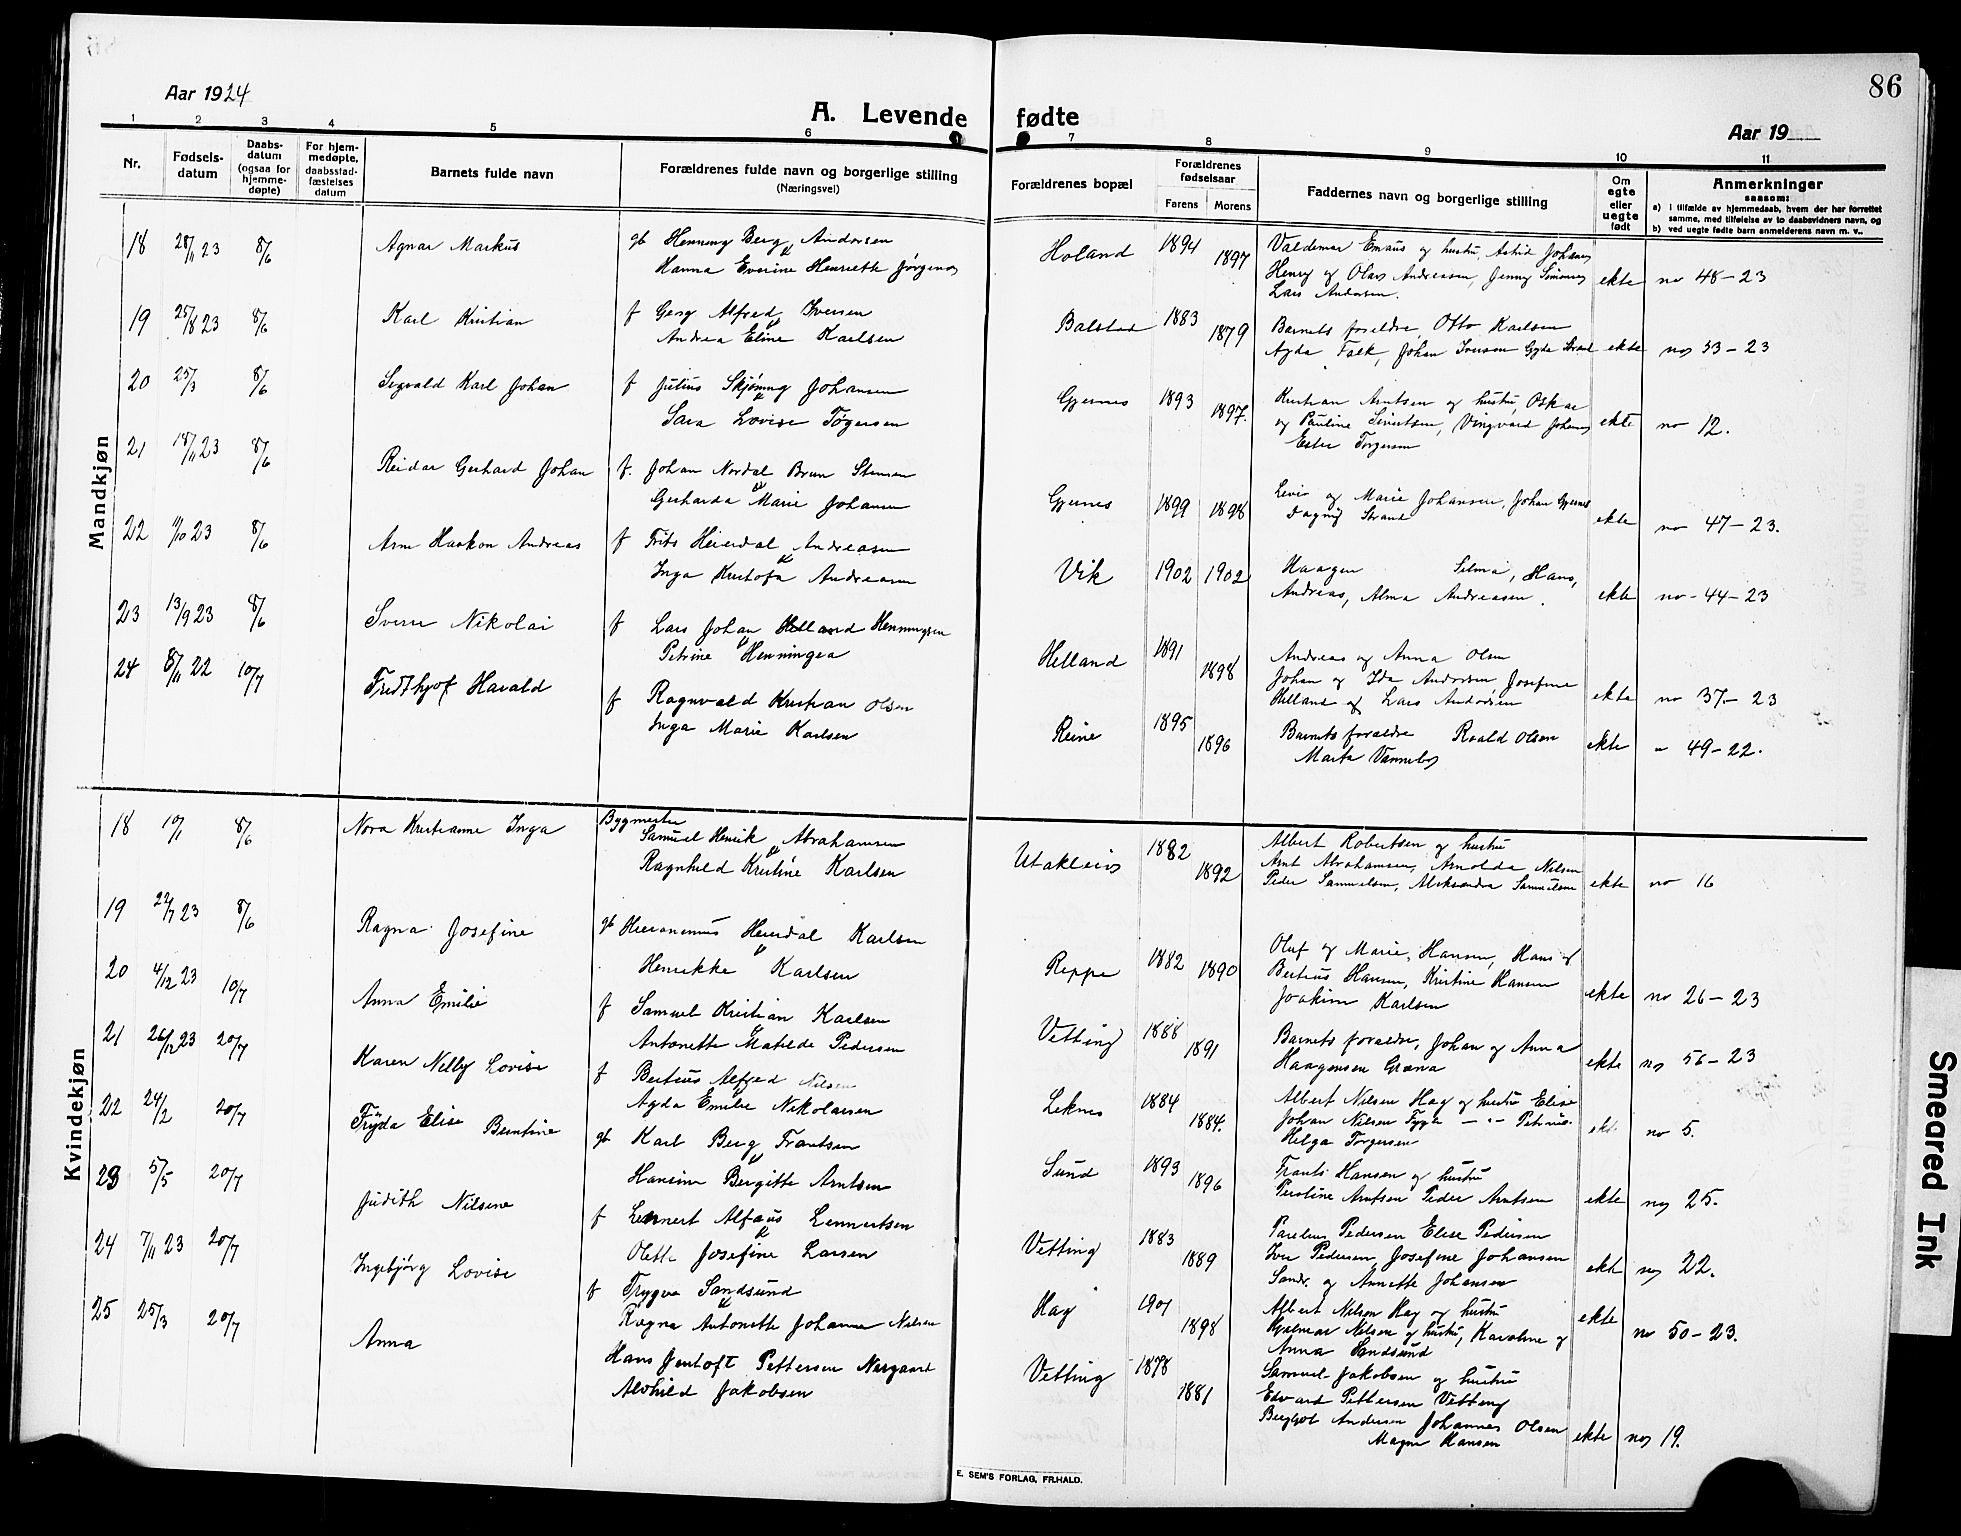 86
Aar 1924
A. Levende fødte
Aar 19
1 2 3 4 5 6 7 8 9 10 11
Nr.
Fødsels-
datum
Daabs-
datum
(ogsaa for
hjemme-
døpte)
For hjem-
medøpte,
daabsstad-
fæstelses
datum
Barnets fulde navn
Forældrenes fulde navn og borgerlige stilling
(Næringsvei)
Forældrenes bopæl
Forældrenes
fødselsaar
Farens Morens
Faddernes navn og borgerlige stilling
Om
egte
eller
uegte
født
Anmerkninger
saasom:
a) i tilfælde av hjemmedaab, hvem der har forrettet
samme, med tilføielse av to daabsvidners navn, og
b) ved uegte fødte barn anmelderens navn m. v..
Mandkjøn
18 28/11 23 8/6 Agnar Markus gb Henning Berg Andersen
Hanna Everine Henriette Jørgensen
Holand 1894 1897 Valdemar Emaus og hustru, Astrid Johansen
Henry og Olav Andreassen, Jenny Simonsen
Lars Andersen.
ekte no 48-23
19 25/8 23 8/6 Karl Kristian f Georg Alfred Iversen
Andrea Eline Karlsen
Balstad 1883 1879 Barnets foreldre Otto Karlsen
Agda Falk, Johan Iversen Gyda Strand
ekte no 33-23
20 25/3 8/6 Sigvald Karl Johan f Julius Skjønning Johansen
Sara Lovise Torgersen
Gjernes 1893 1897. Kristian Arntsen og hustru, Oskar
og Pauline Sivertsen, Vingvard Johansen
Ester Torgersen
ekte no 12.
21 18/11 23 8/6 Reidar Gerhard Johan f. Johan Nordal Brun Stensen
Gerharda Marie Johansen
Gjernes 1899 1898 Levis og Marie Johansen, Johan Gjernes
Dagny Strand
ekte no 47-23.
22 11/10 23 8/6 Arne Haakon Andreas f Frits Heierdal Andreasen
Inga Kristofa Andreasen
Vik 1902 1902 Haagen Selma, Hans,
Andreas, Alma Andreasen.
ekte no - 44-23
23 13/9 23 8/6 Sverre Nikolai f Lars Johan Helland Henningsen
Petrine Henningea
Helland 1891 1898 Andreas og Anna Olsen
Johan og Ida Andersen Josefine
Helland og Lars Andersen
ekte no 37-23
24 8/11 22 10/7 Fridthjof Harald f Ragnvald Kristian Olsen
Inga Marie Karlsen
Reine 1895 1896 Barnets foreldre Roald Olsen
Marta Vannebo
ekte " 49-22.
Kvindekjøn
18 10/1 8/6 Nora Kristianne Inga Bygmester
Samuel Henrik Abrahamsen
Ragnhild Kristine Karlsen
Utakleiv 1882 1892 Albert Robertsen og hustru
Arnt Abrahamsen, Arnolda Nilsen
Peder Samuelsen, Aleksandra Samuelsen
ekte no 16
19 22/7 23 8/6 Ragna Josefine gb Hieronimus Heierdal Karlsen
Henrikke Karlsen
Reppe 1882 1890 Oluf og Marie Hansen, Hans og
Bertius Hansen, Kristine Hansen
Joakim Karlsen
ekte no 26-23
20 4/12 23 10/7 Anna Emilie f Samuel Kristian Karlsen
Antonette Matilde Pedersen
Vetting 1888 1891 Barnets foreldre, Johan og Anna
Haagensen Grena
ekte no 56-23
21 26/12 23 20/7 Karen Nelly Lovise f Bertius Alfred Nilsen
Agda Emilie Nikolaisen
Leknes 1884 1884. Albert Nilsen Hag og hustru Elise
Johan Nilsen Fygle - " - Petrine
Helga Torgersen
ekt. no 5.
22 24/2 20/7 Frÿda Elise Berntine gb Karl Berg Frantsen
Hansine Bergitte Arntsen
Sund 1893 1896 Frants Hansen og hustru
Peroline Arntsen Peder Arntsen
ekte no 25.
23 5/5 20/7 Judith Nilsine f Lennert Alfaus Lennertsen
Olette Josefine Larsen
Vetting 1883 1889 Parelius Pedersen Elise Pedersen
Iver Pedersen, Josefine Johansen
Sandr. og Annette Johansen
ekt no 22.
24 7/11 23 20/7 Ingebjørg Lovise f Trygve Sandsund
Ragna Antonette Johanna Nilsen
Hag 1901 1898 Albert Nilsen Hag og hustru
Hjalmar Nilsen og hustru, Karoline og
Anna Sandsund
ekte no 50-23.
25 25/3 20/7 Anna Hans Jentoft Pettersen Norgaard
Alvhild Jakobsen
Vetting 1878 1881 Samuel Jakobsen og hustru
Edvard Pettersen Vetting
Bergljot Andersen Johannes Olsen
Magne Hansen
ekte no 19.
E. SEM'S FORLAG, FR.HALD.
Smeared Ink